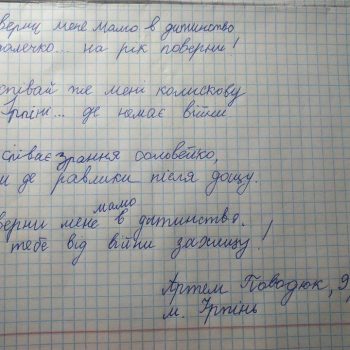 верни мене мамо в дитинство
далечко... на рік поверни!
співай же мені колискову
Ірпіні... де немає війни
співає зрання соловейко,
и де равлики після дощу.
верни мене мамо в дитинство.
тебе від війни захищу!
Артем Поводюк, 9
м. Ірпінь